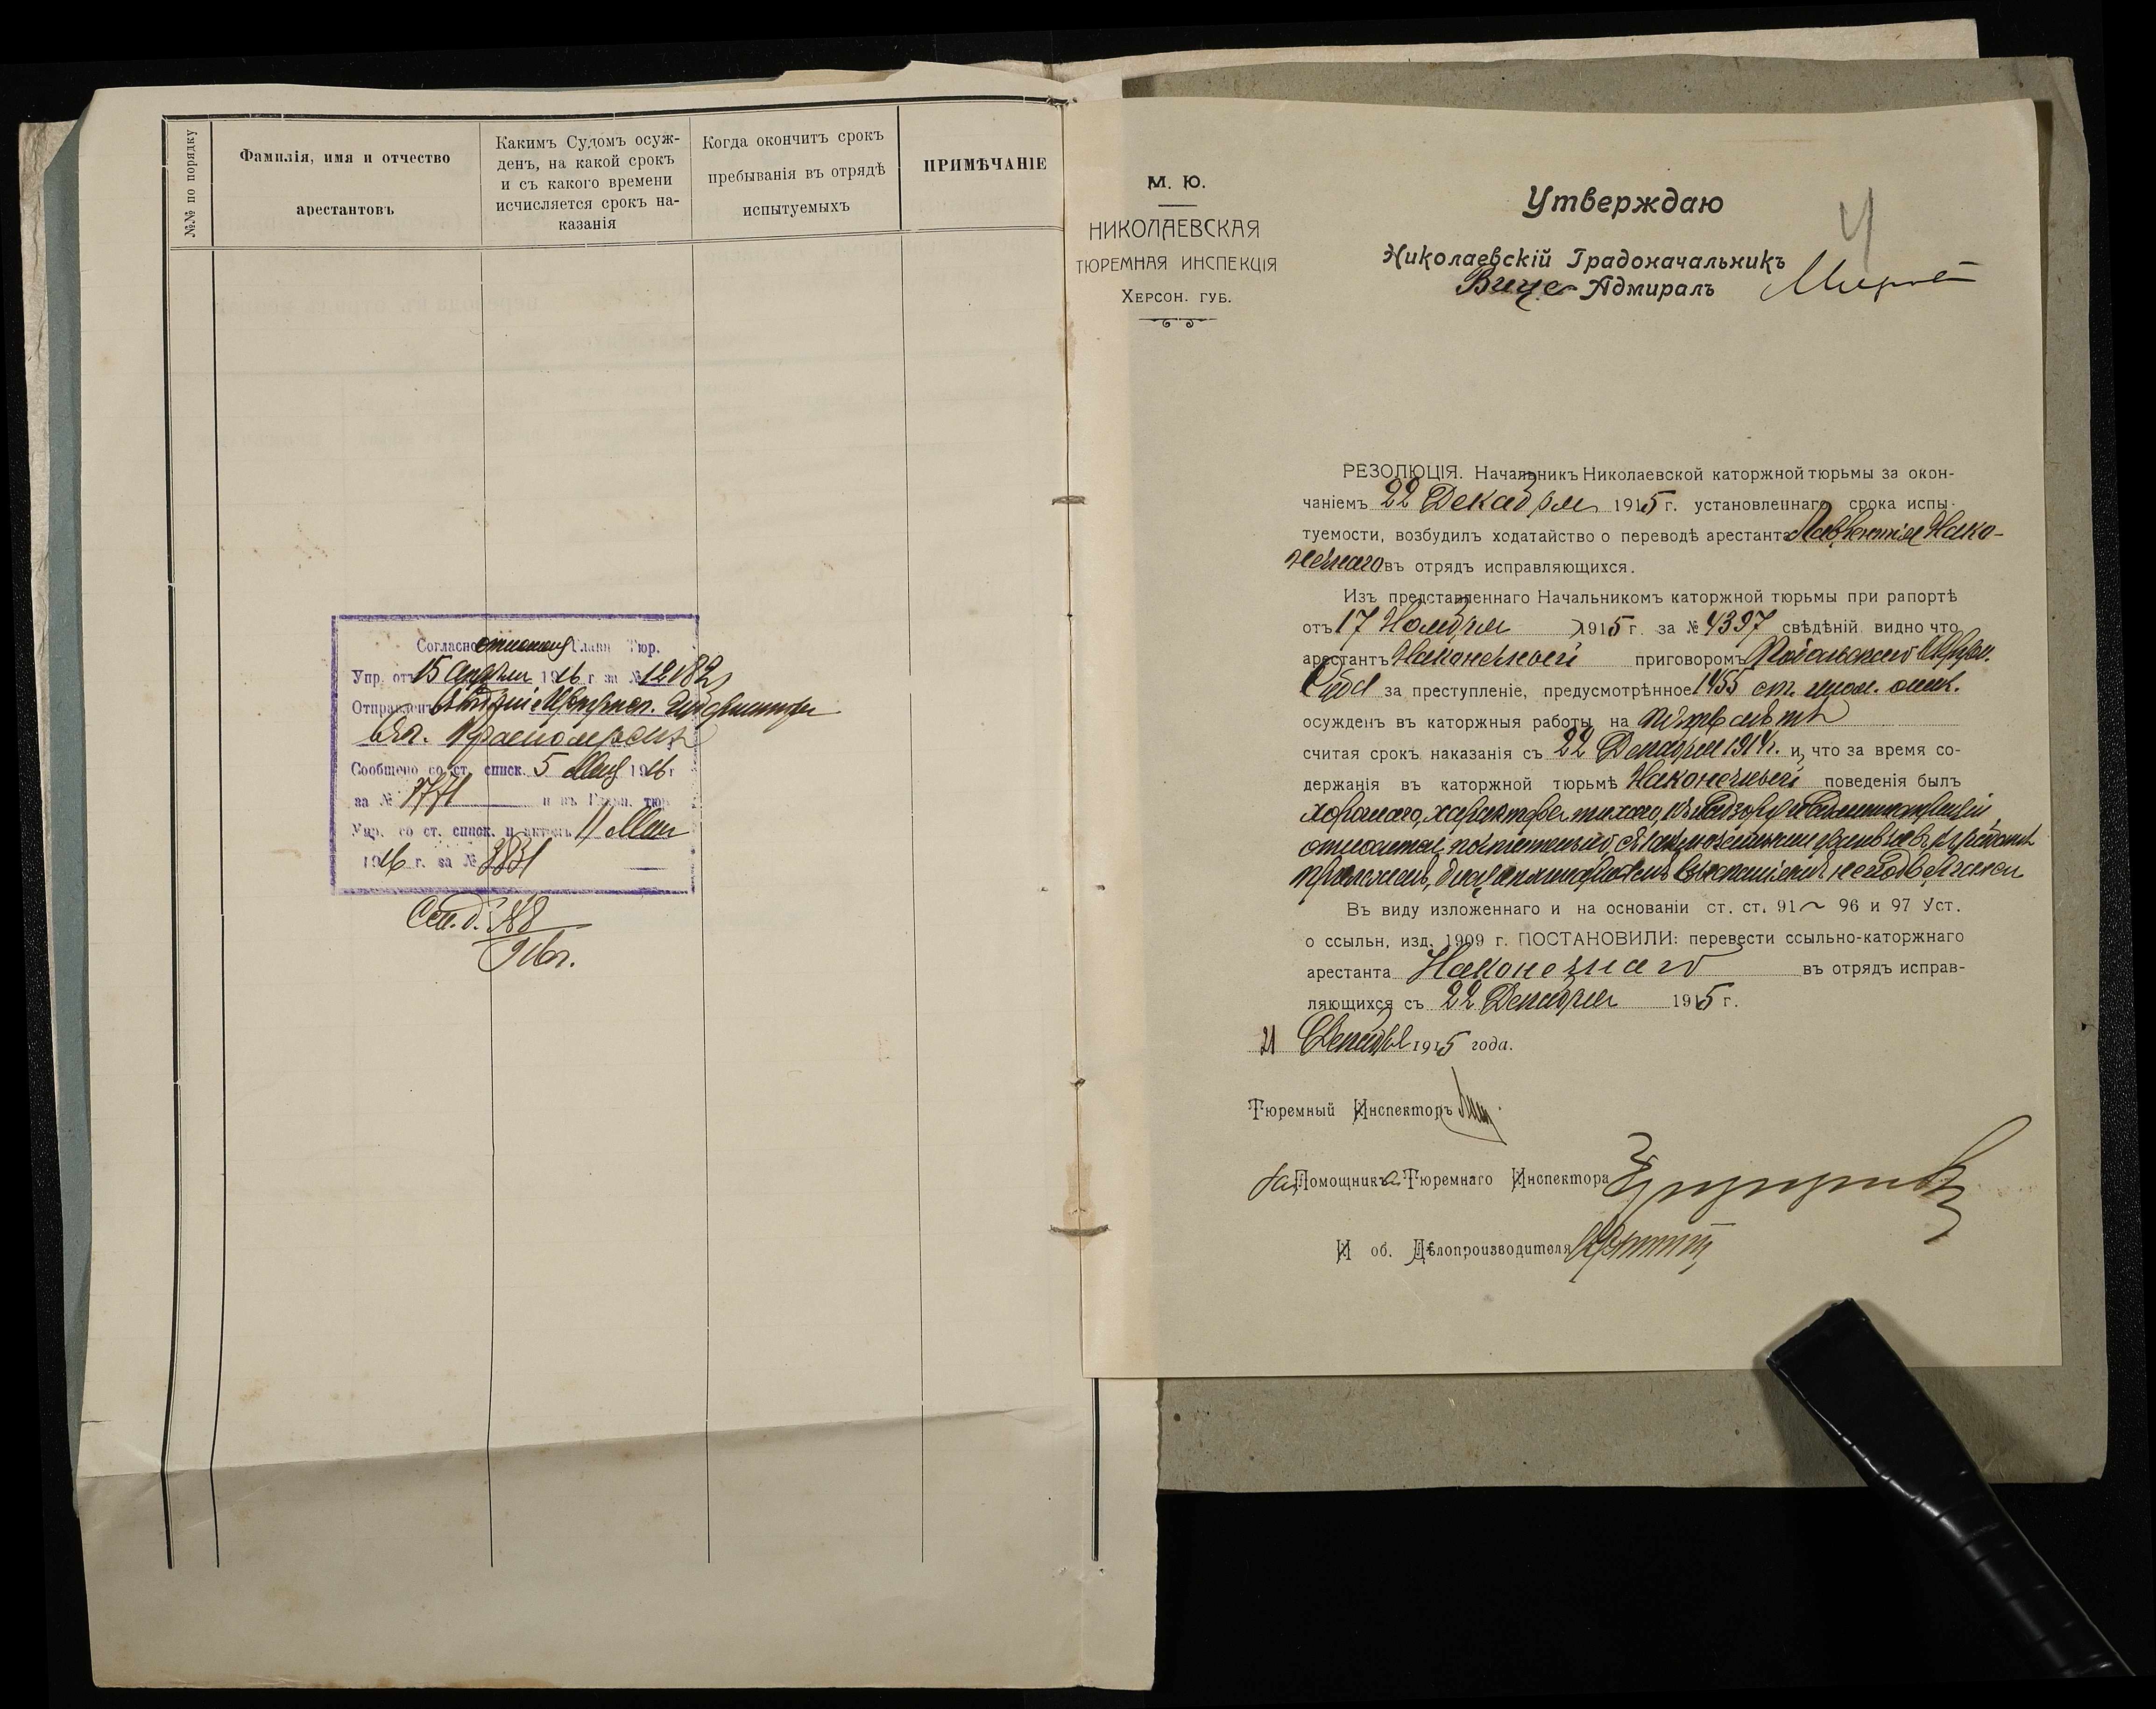 №№ по порядку
Фамилія, имя и отчество
арестантовъ
Какимъ Судомъ осуж-
денъ, на какой срокъ
и съ какого времени
исчисляется срокъ на-
казанія
Когда окончитъ срокъ
пребыванія въ отрядѣ
испытуемыхъ
ПРИМѢЧАНІЕ
Согласно отношенія Главн Тюр.
Упр. отъ 15 Апрѣля 1916 г за № 12182
Отправленъ
Сообщено со ст. списк. 5 Мая 1916 г
за № 3771 и въ Главн. тюр
Упр. со ст. списк. и актомъ 11 Мая
1916 г. за № 3831
М. Ю.
НИКОЛАЕВСКАЯ
ТЮРЕМНАЯ ИНСПЕКЦІЯ
ХЕРСОН. ГУБ.
Утверждаю
4
Николаевскій Градоначальникъ
Вице-Адмиралъ
РЕЗОЛЮЦІЯ. Начальникъ Николаевской каторжной тюрьмы за окон-
чаніемъ 22 Декабря 1915 г. установленнаго срока испы-
туемости, возбудилъ ходатайство о переводѣ арестанта Лаврентія Нако-
нечнаго въ отрядъ исправляющихся.
Изъ представленнаго Начальникомъ каторжной тюрьмы при рапортѣ
отъ 17 Ноября 1915 г. за № 4397 свѣдѣній видно что
арестантъ Наконечный приговоромъ Окружн.
Суда за преступленіе, предусмотрѣнное 1455 ст. улож. о нак.
осужденъ въ каторжныя работы на
считая срокъ наказанія съ 22 Декабря 1914 г. и, что за время со-
держанія въ каторжной тюрьмѣ Наконечный поведенія былъ
хорошаго, характера тихаго, къ надзору и администраціи
относится почтительно
Въ виду изложеннаго и на основаніи ст. ст. 91 ~ 96 и 97 Уст.
о ссыльн, изд. 1909 г. ПОСТАНОВИЛИ: перевести ссыльно-каторжнаго
арестанта Наконечнаго въ отрядъ исправ-
ляющихся съ 22 Декабря 1915 г.
21 Декабря 1915 года.
Тюремный Инспекторъ
За Помощника Тюремнаго Инспектора
И об. Дѣлопроизводителя